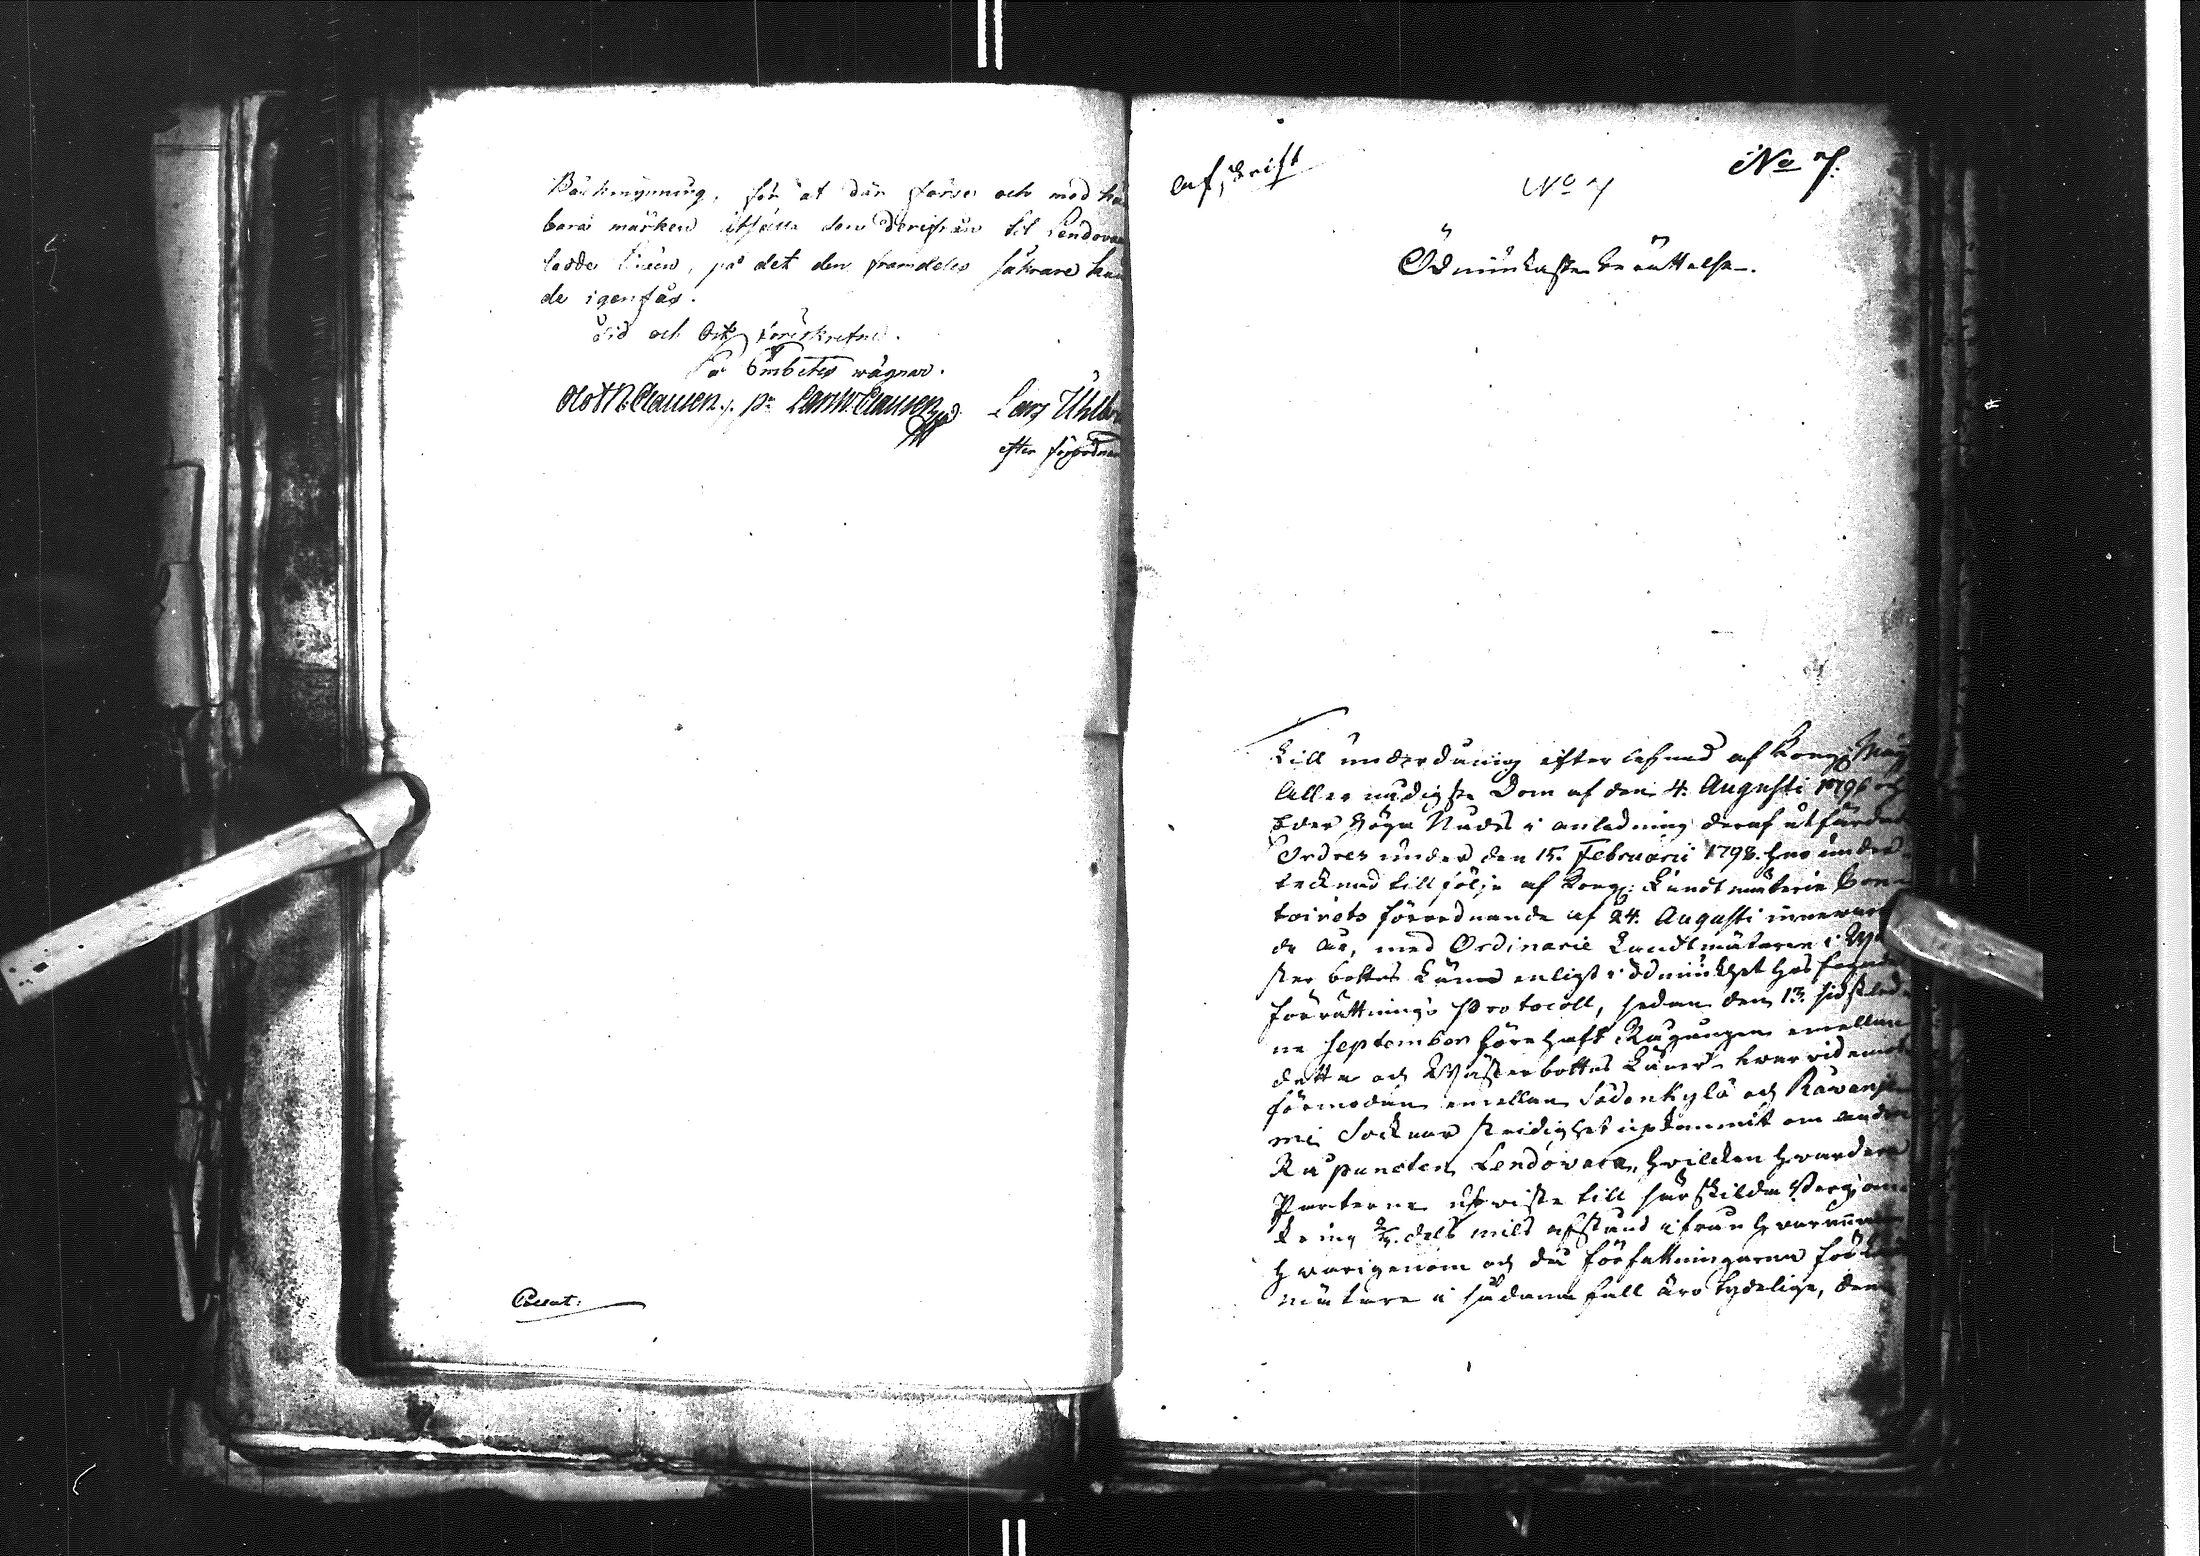 Bäckmynning, för at där förse och med
bara märken utsätta den derifrån til Lendova
ledde linien, på det den framdeles säkrare
de igenfås.
Tid och Ort föreskrefne.
På Embetes wägnar.
Olof N. Clausen. pr Lars W. Clausen Lars
efter förordnan
Collat:
Afskrift
No 7
No 7.
Ödmiukaste berättelse.
Till underdånig efterlefnad af Kongl. Maj
Allernådigste Dom af den 4. Augusti 1796 och
Eder Höga Nåds i anledning deraf utfärdade
Ordres under den 15. Februarii 1798. har under-
tecknad till följe af Kongl. Landtmäterie Con-
toirets förordnande af 24. Augusti innewaran
de år, med Ordinarie Landtmätaren i
ster bottns Län enligt i ödmiukhet hos fogade
förrättnings Protocoll, sedan den 13. sidstled
ne September förehaft Rågången emellan
detta och Wästerbottns Län, hwarvid emot
förmodan emellan Sodankylä och Råwanje
mi Socknar stridighet upkommit om andra
Rå puncten Lendovara, hvilken hvardera
Parterne utwiste till särskilda Berg, om
kring dels mils afstånd ifrån hvarannan
hwarigenom och då författningarne för Landt
mätare i sådana fall äro tydelige, den